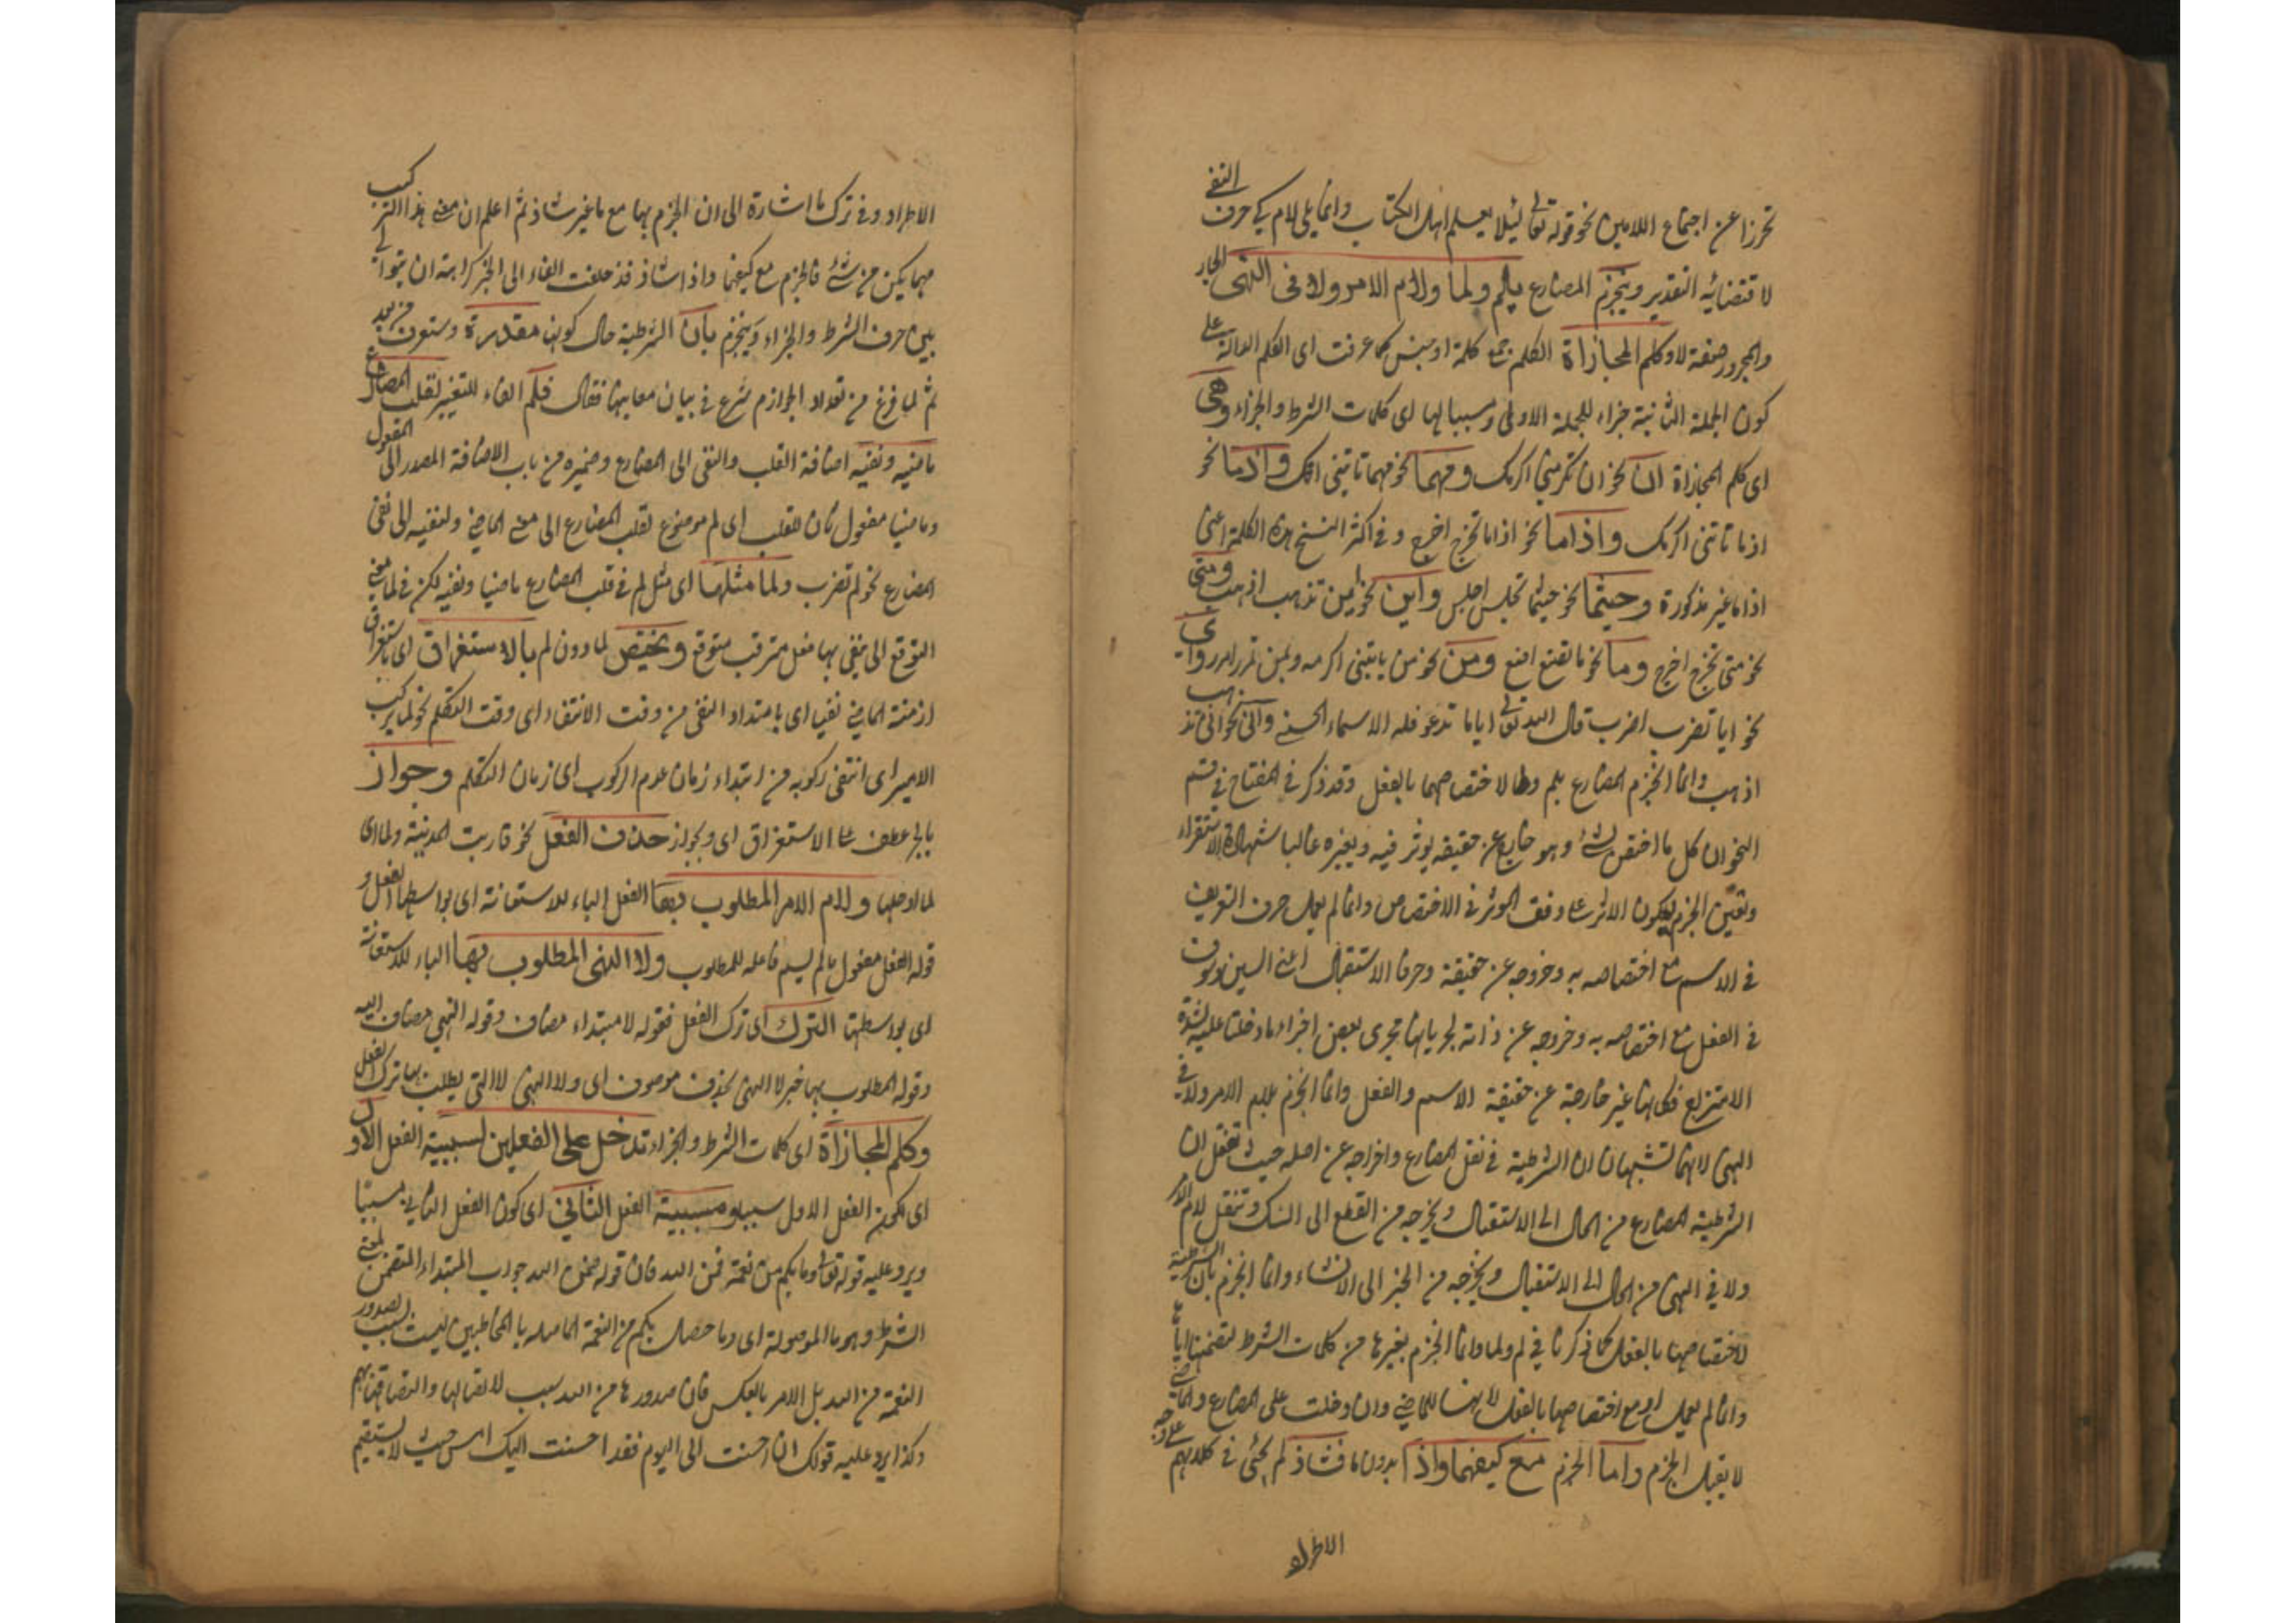 تحرزا عن اجتماع اللامين نحو قوله تعالى لئلا يعلم اهل الكتاب وانما يلى لام كى حرف النفى
لاقتضائه التقدير وينجزم المضارع بلم ولما ولام الامر ولا فى النهى الجار
والمجرور صفة لا وكلم المجازاة الكلم جمع كلمة او جنس كما عرفت اى الكلم الدالة على
كون الجملة الثانية جزاء للجملة الاولى ومسببا لها اى كلمات الشرط والجزاء وهى
اى كلم المجازاة ان نحو ان تكرمنى اكرمك ومهما نحو مهما تاتنى اتك واذما نحو
اذما تاتنى اكرمك واذاما نحو اذاما تخرج اخرج وفى اكثر النسخ هذه الكلمة اعنى
اذاما غير مذكورة وحيثما نحو حيثما تجلس اجلس واين نحو اين تذهب اذهب ومتى
نحو متى تخرج اخرج وما نحو ما تصنع اصنع ومن نحو من ياتينى اكرمه وبمن تمرر امرر واى
نحو ايا تضرب اضرب قال الله تعالى اياما تدعو فله الاسماء الحسنى وانى نحو انى تذهب
اذهب وانما انجزم المضارع بلم ولما لاختصاصهما بالفعل وقد ذكر فى المفتاح فى قسم
النحو ان كل ما اختص بشئ وهو خارج عن حقيقته يؤثر فيه ويغيره غالبا بشهادة الاستقراء
وتعين الجزم ليكون الاثر على وفق المؤثر فى الاختصاص وانما لم يعمل حرف التعريف
فى الاسم مع اختصاصه به وخروجه عن حقيقته وحرفا الاستقبال اعنى السين وسوف
فى الفعل مع اختصاصه به وخروجه عن ذاته لجريانها مجرى بعض اجزاء ما دخلت عليه لشدة
الامتزاج فكانها غير خارجة عن حقيقة الاسم والفعل وانما انجزم بلام الامر ولا فى
النهى لانهما تشبهان ان الشرطية فى نقل المضارع واخراجه عن اصله حيث تنقل ان
الشرطية المضارع من الحال الى الاستقبال ويخرجه من القطع الى الشك وتنقل لام الامر
ولا فى النهى من الحال الى الاستقبال ويخرجه من الخبر الى الانشاء وانما انجزم بان الشرطية
لاختصاصها بالفعل كما ذكرنا فى لم ولما وانما انجزم بغيرها من كلمات الشرط لتضمنها اياها
وانما لم يعمل لو مع اختصاصها بالفعل لانها للماضى وان دخلت على المضارع والماضى
لا يقبل الجزم واما الجزم مع كيفما واذا بدون ما فشاذ لم يجئ فى كلامهم على وجه
الاطراد
الاطراد وفى ترك ما اشارة الى ان الجزم بها مع ما غير شاذ ثم اعلم ان معنى هذا التركيب
مهما يكن من شئ فالجزم مع كيفما واذا شاذ فزحلقت الفاء الى الخبر كراهة ان يتوالى
بين حرف الشرط والجزاء وينجزم بان الشرطية حال كونها مقدرة وستعرف من بعد
ثم لما فرغ من تعداد الجوازم شرع فى بيان معانيها فقال فلم الفاء للتفسير لقلب المضارع
ماضيه ونفيه اضافة القلب والنفى الى المضارع وضميره من باب الاضافة المصدر الى المفعول
وماضيا مفعول ثان للقلب اى لم موضوع لقلب المضارع الى معنى الماضى ولنفيه الى نفى
المضارع نحو لم تضرب ولما مثلها اى مثل لم فى قلب المضارع ماضيا ونفيه لكن فى لما معنى
التوقع الى ينفى بها فعل مترقب متوقع ويختص لما دون لم بالاستغراق اى باستغراق
ازمنة الماضى نفيا اى بامتداد النفى من وقت الانتفاء اى وقت التكلم نحو لما يركب
الامير اى انتفى ركوبه من ابتداء زمان عدم الركوب اى زمان التكلم وجواز
بالجر عطف على الاستغراق اى وبجواز حذف الفعل نحو قاربت المدينة ولما اى
لما ادخلها ولام الامر المطلوب فيها الفعل الباء للاستعانة اى بواسطها الفعل و
قوله الفعل مفعول ما لم يسم فاعله للمطلوب ولا النهى المطلوب بها الباء للاستعانة
اى بواسطتها الترك اى ترك الفعل فقوله لا مبتداء مضاف وقوله النهى مضاف اليه
وقوله المطلوب بها خبر لا النهى بحذف موصوف اى ولا النهى لا التى يطلب بها ترك الفعل
وكلم المجازاة اى كلمات الشرط والجزاء تدخل على الفعلين لسببية الفعل الاول
اى لكون الفعل الاول سببا ومسببية الفعل الثانى اى كون الفعل الثانى مسببا
ويرد عليه قوله تعالى وما بكم من نعمة فمن الله فان قوله فمن الله جواب المبتداء المتضمن لمعنى
الشرط وهو ما الموصولة اى وما حصل بكم من النعمة الحاصلة بالمخاطبين ليست بسبب لصدور
النعمة من الله بل الامر بالعكس فان صدورها من الله سبب لاتصالها والتصاقها بهم
وكذا يرد عليه قولك ان احسنت الى اليوم فقد احسنت اليك امس حيث لا يستقيم